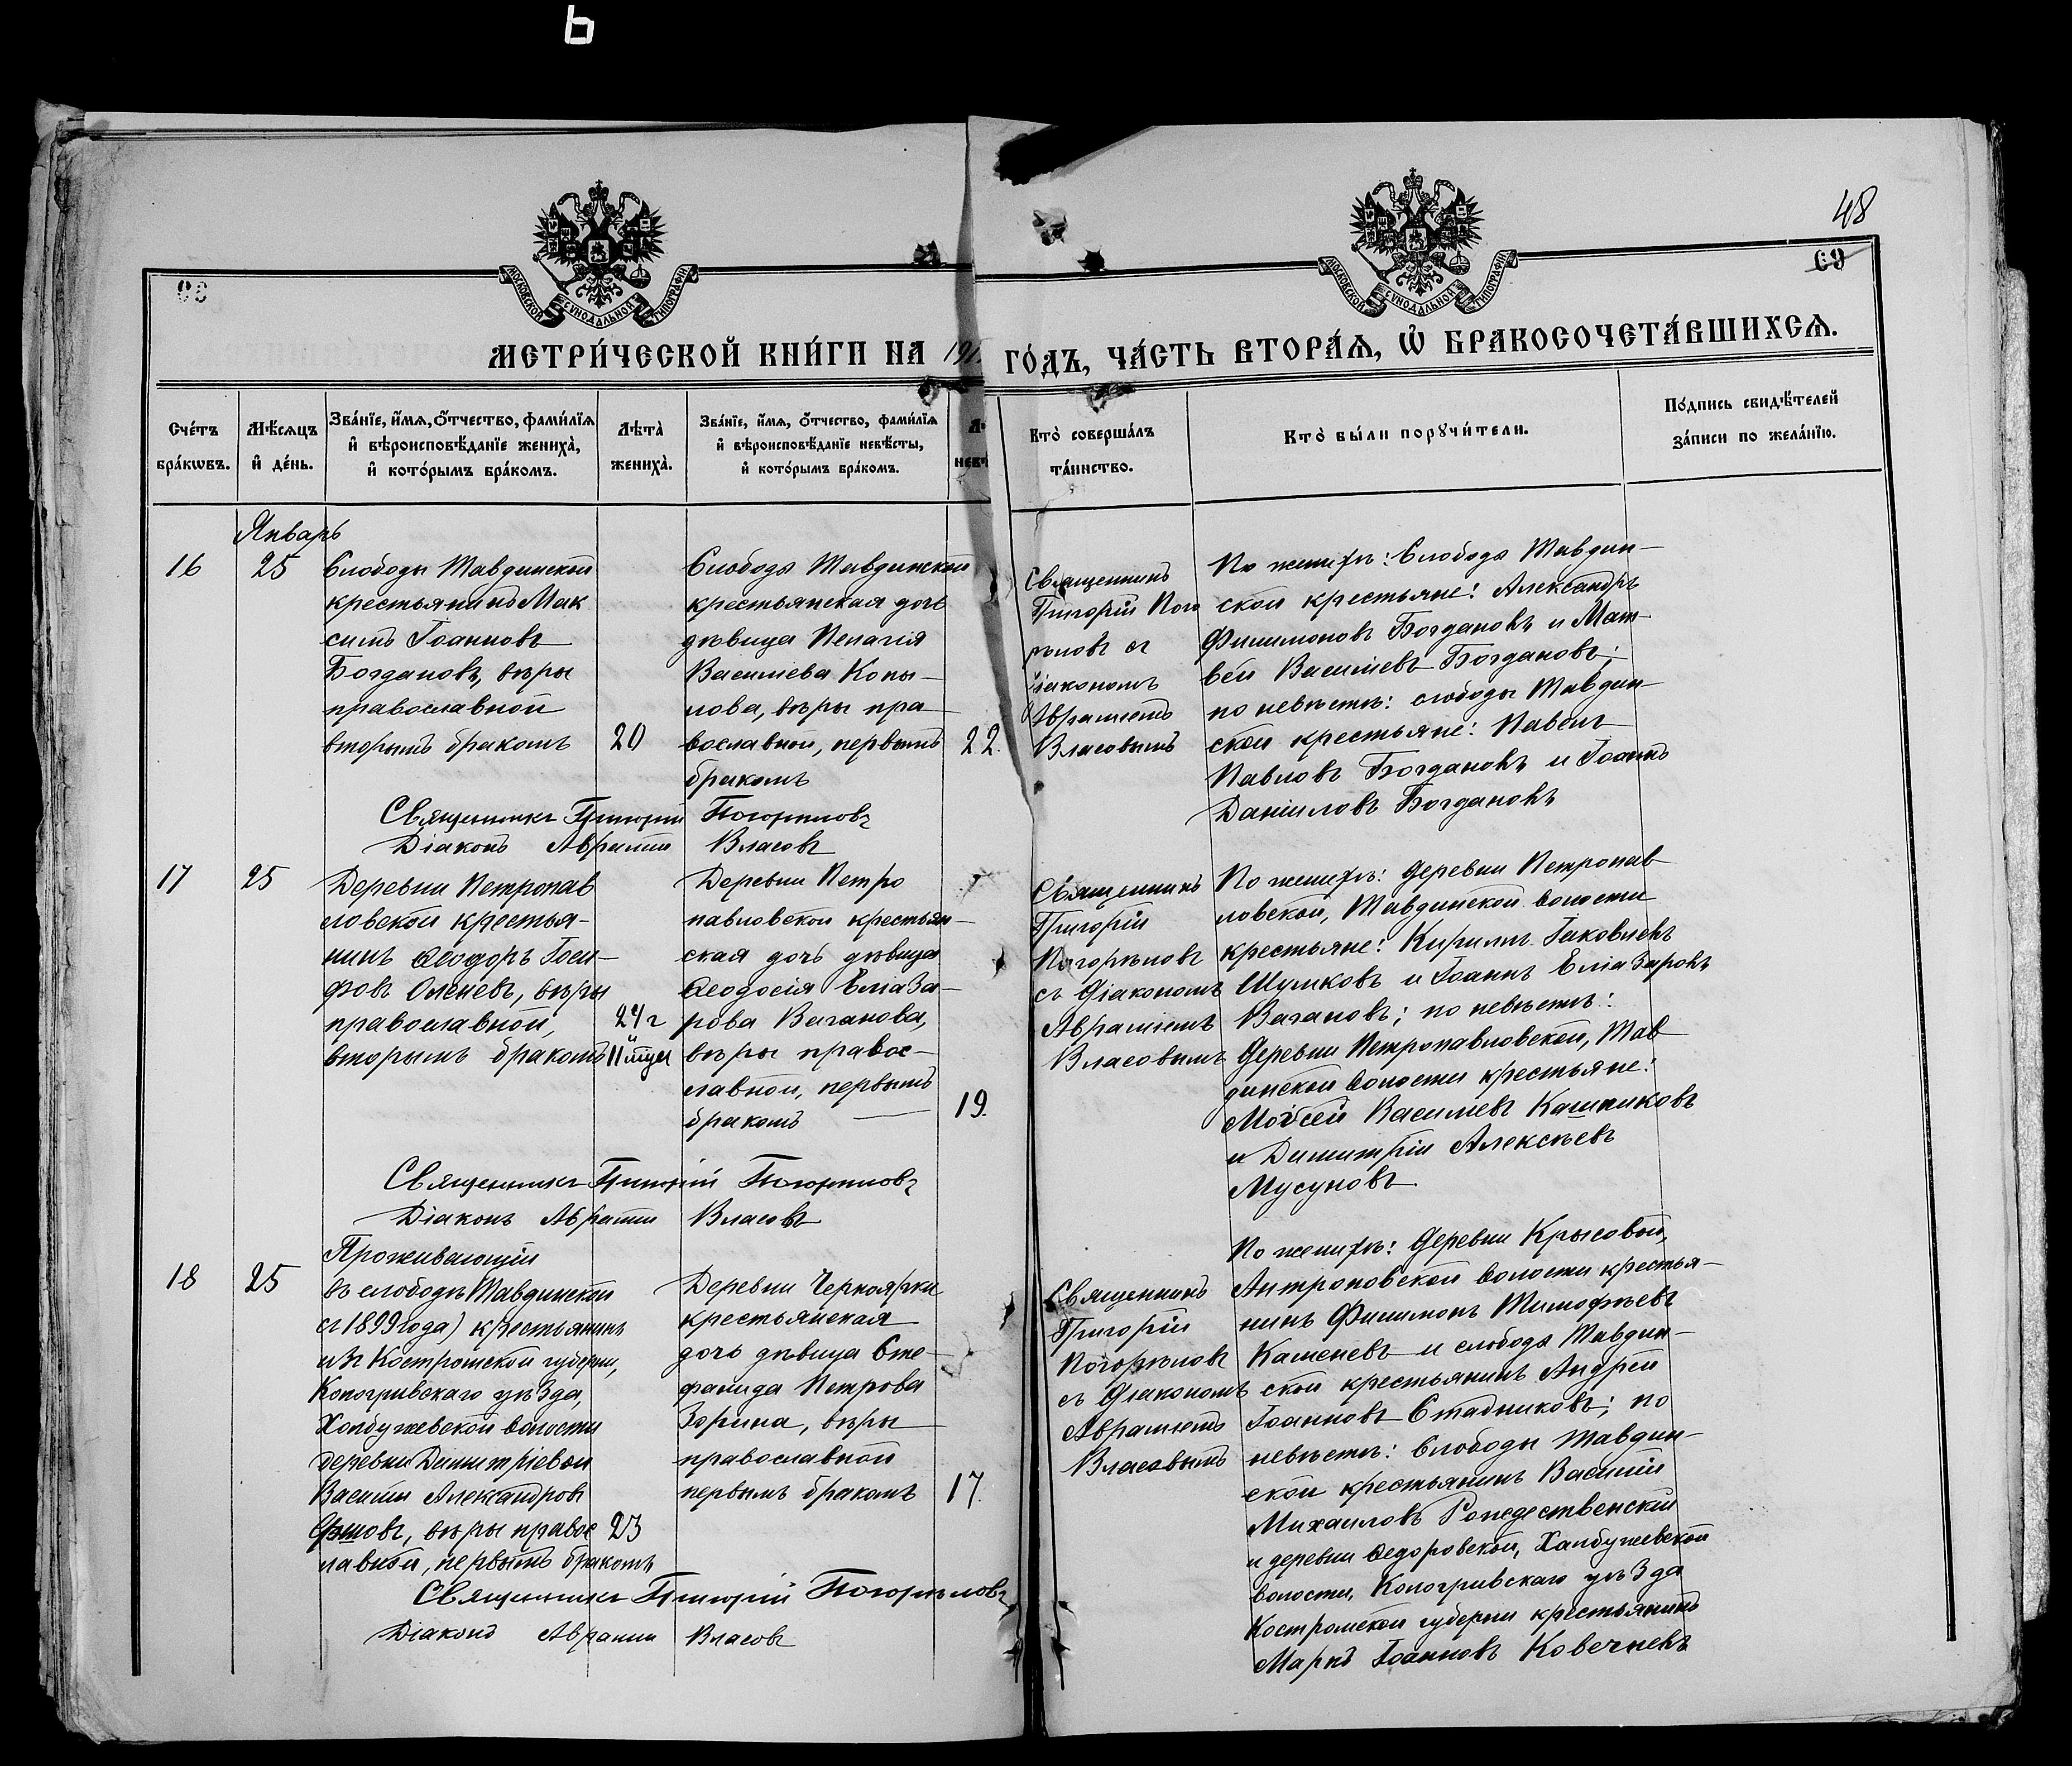 48
69
МОСКОВСКОЙ СУНОДАЛЬНОЙ ТИПОГРАФІИ
МОСКОВСКОЙ СУНОДАЛЬНОЙ ТИПОГРАФІИ
МЕТРИ́ЧЕСКОЙ КНИ́ГИ НА 191 ГО́ДЪ, ЧА́СТЬ ВТОРА́Ѧ, Ѡ҆ БРАКОСОЧЕТА́ВШИХСѦ.
Сче́тъ
бра́кѡвъ.
Мѣ́сѧцъ
и҆ де́нь.
Зва́нїе, и҆́мѧ, ѻ҆́тчество, фами́лїѧ
и҆ вѣроисповѣ́данїе жениха̀,
и҆ кото́рымъ бра́комъ.
Лѣта̀
жениха̀.
Зва́нїе, и҆́мѧ, ѻ҆́тчество, фами́лїѧ
и҆ вѣроисповѣ́данїе невѣ́сты,
и҆ кото́рымъ бра́комъ.
Кто̀ соверша́лъ
та́инство.
Кто̀ бы́ли порꙋчи́тели.
По́дпись свидѣ́телей
за́писи по жела́нїю.
Январь
16
25
Слободы Тавдинской
крестьянинъ Мак
симъ Іоанновъ
Богдановъ, вѣры
православной
вторымъ бракомъ
20
Слободы Тавдинской
крестьянская дочь
дѣвица Пелагія
Васильева Копы-
лова, вѣры пра-
вославной, первымъ
бракомъ
22.
Священникъ
Григорій Пого
рѣловъ съ
діакономъ
Авраміемъ
Власовымъ
По женихѣ: Слободы Тавдин-
ской крестьяне: Александръ
Филимоновъ Богдановъ и Мат-
вѣй Василіевъ Богдановъ;
по невѣстѣ: слободы Тавдин-
ской крестьяне: Павелъ
Павловъ Богдановъ и Іоаннъ
Даніиловъ Богдановъ
Священникъ Григорій Погорѣловъ
Діаконъ Аврамій Власовъ
17
25
Деревни Петропав
ловской крестья-
нинъ Ѳеодоръ Іоси-
фовъ Оленевъ, вѣры
православной,
вторымъ бракомъ
24 г
и
11 мцл
Деревни Петро
павловской крестьян-
ская дочь дѣвица
Ѳеодосія Еліаза-
рова Ваганова,
вѣры правос-
лавной, первымъ
бракомъ
19.
Священникъ
Григорій
Погорѣловъ
съ діакономъ
Авраміемъ
Власовымъ
По женихѣ: деревни Петропав
ловской, Тавдинской волости
крестьяне: Кириллъ Іаковлевъ
Шумковъ и Іоаннъ Еліазаровъ
Вагановъ; по невѣстѣ:
деревни Петропавловской, Тав
динской волости крестьяне:
Моѵсей Васильевъ Кашниковъ
и Димитрій Алексѣевъ
Мусуновъ.
Священникъ Григорій Погорѣловъ
Діаконъ Аврамій Власовъ
18
25
Проживающій
въ слободѣ Тавдинской
съ 1899 года) крестьянинъ
изъ Костромской губерніи,
Кологривскаго уѣзда,
Халбужевской волости
деревни Димитріевой
Василій Александровъ
вѣры правос
лавной, первымъ бракомъ
23
Деревни Черноярки
крестьянская
дочь дѣвица Сте-
фанида Петрова
Зорина, вѣры
православной
первымъ бракомъ
17.
Священникъ
Григорій
Погорѣловъ
съ діакономъ
Авраміемъ
Власовымъ
По женихѣ: деревни Крысовой,
Антроповской волости крестья-
нинъ Филимонъ Тимофѣевъ
Каменевъ и слободы Тавдин-
ской крестьянинъ Андрей
Іоанновъ Стадниковъ; по
невѣстѣ: Слободы Тавдин-
ской крестьянинъ Василій
Михаиловъ Рождественскій
и деревни Ѳедоровской, Халбужевской
волости, Кологривскаго уѣзда
Костромской губерніи крестьянинъ
Маркъ Іоанновъ Ковечневъ
Священникъ Григорій Погорѣловъ
Діаконъ Аврамій Власовъ